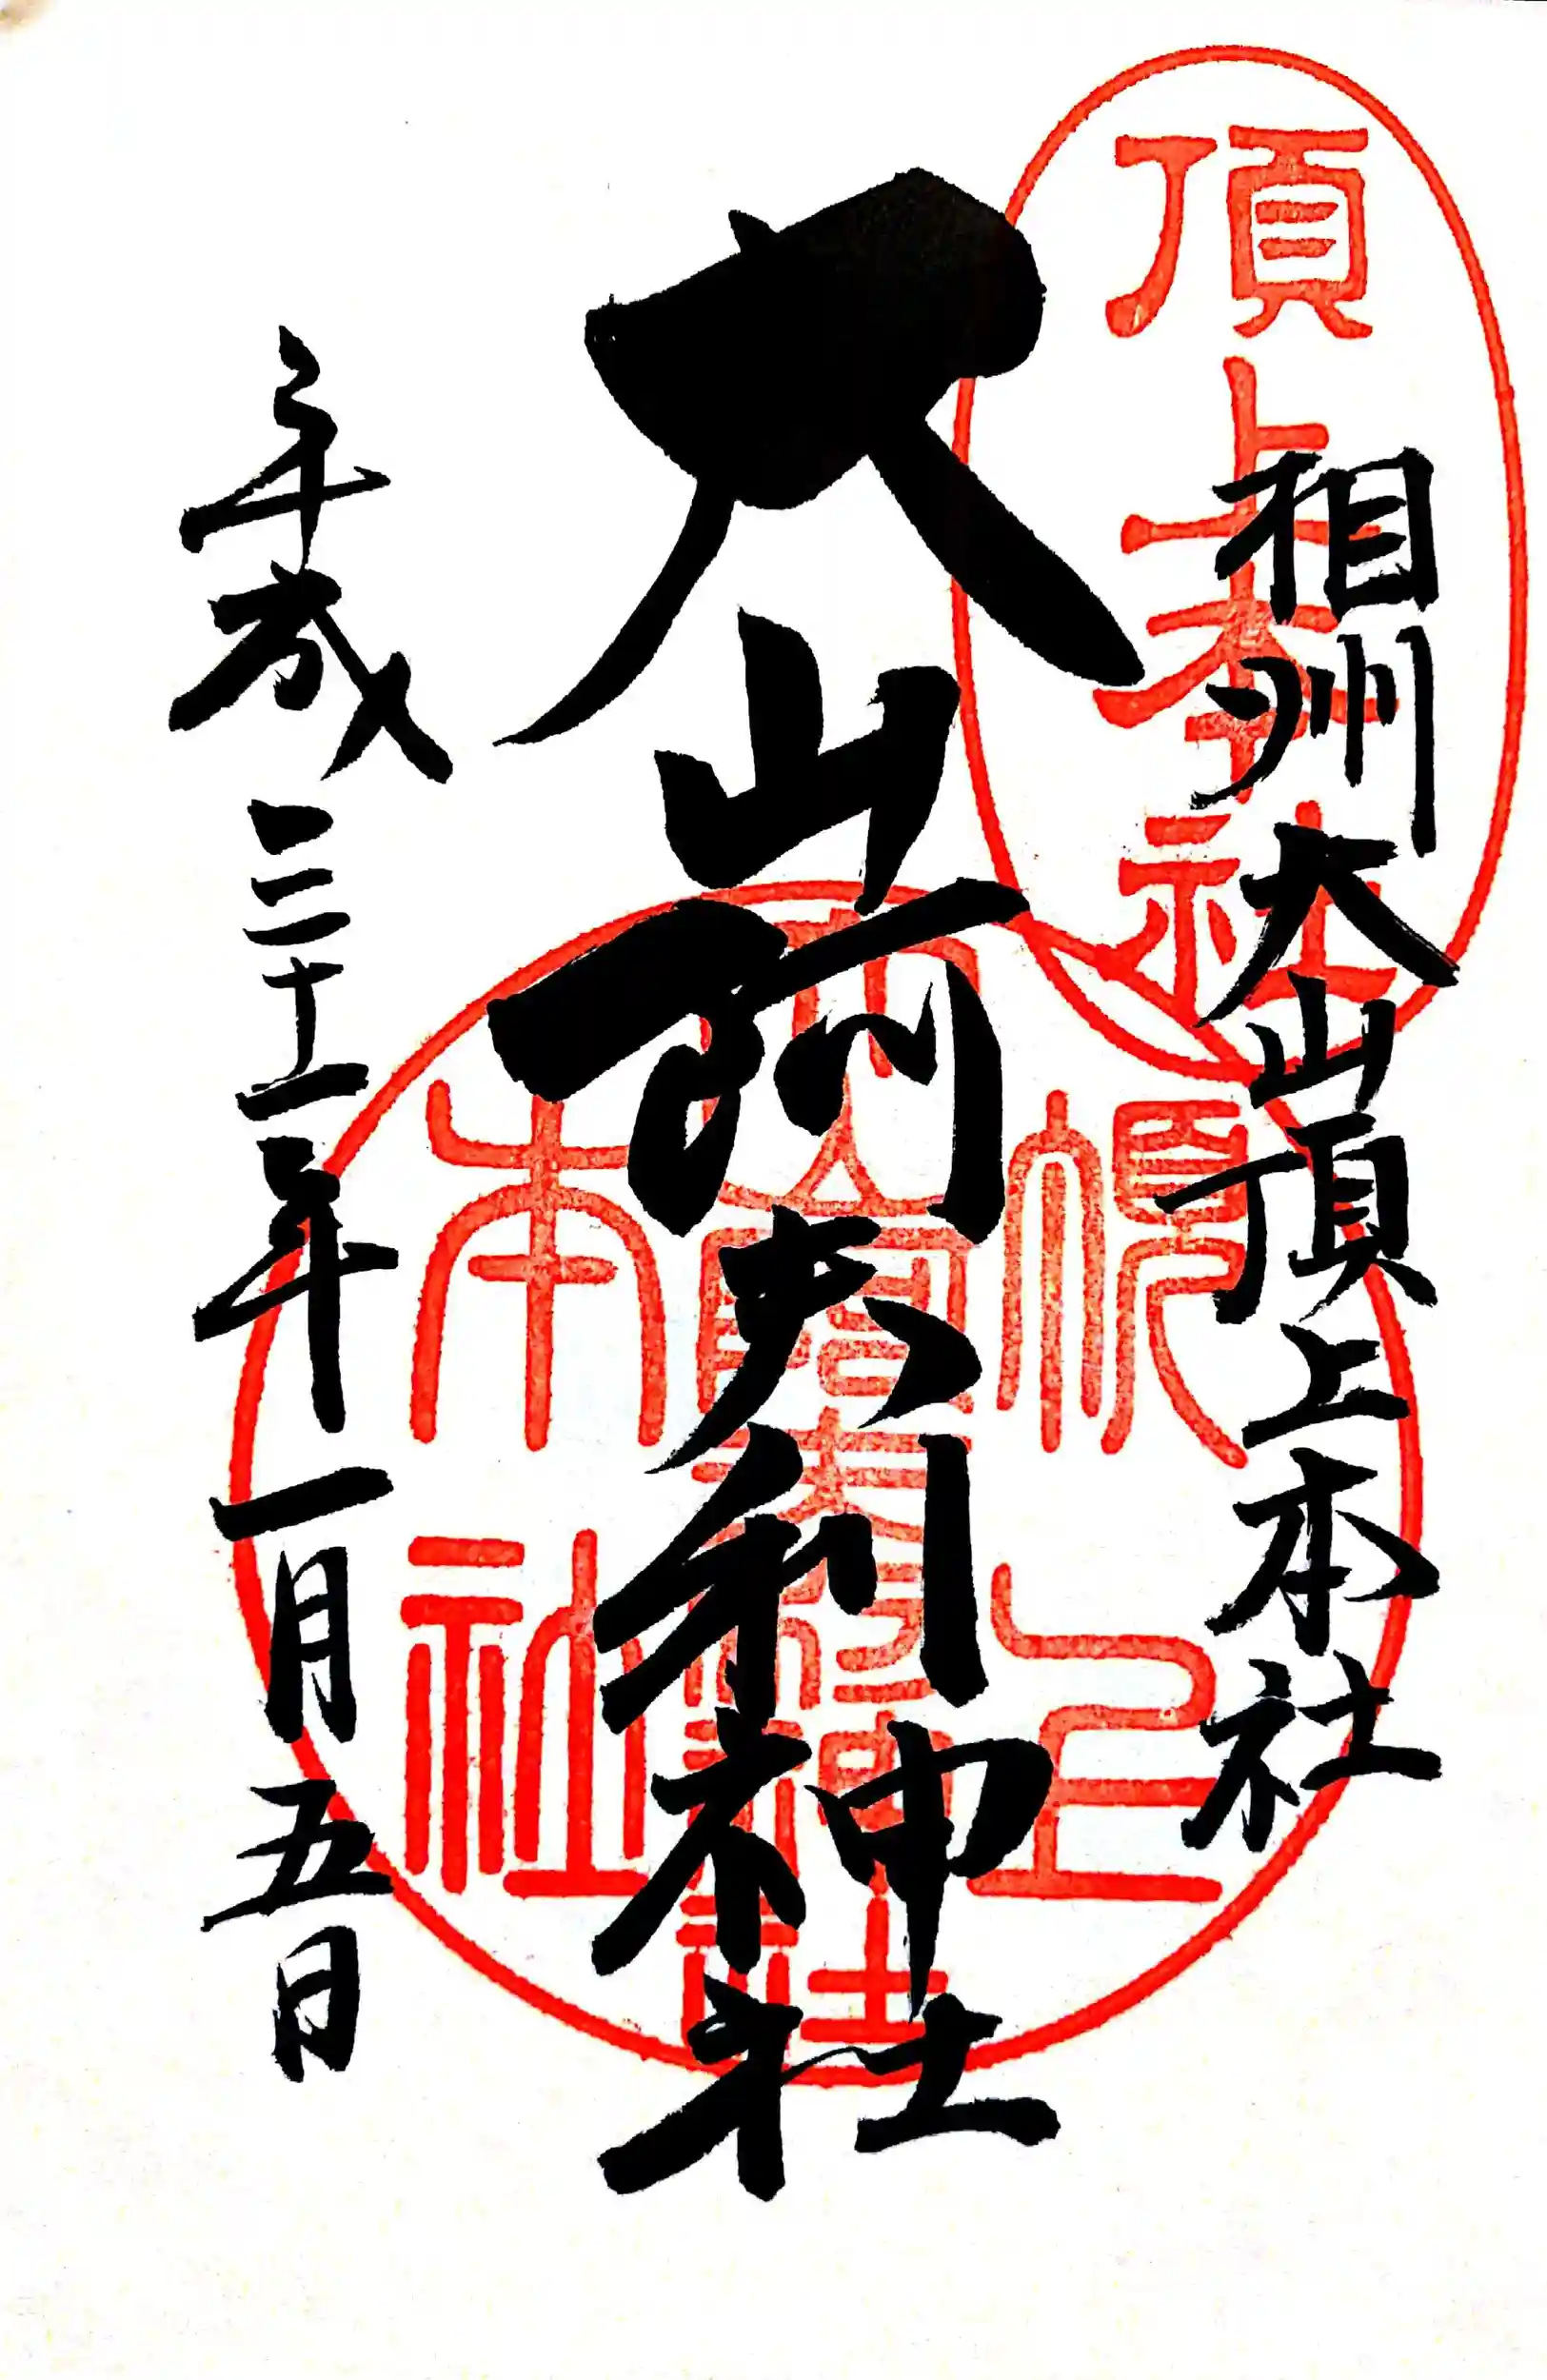 頂上本社
相州大山頂上本社
大山阿夫利神社
平成三十一年一月五日
頂上
大山阿夫利神社
本社